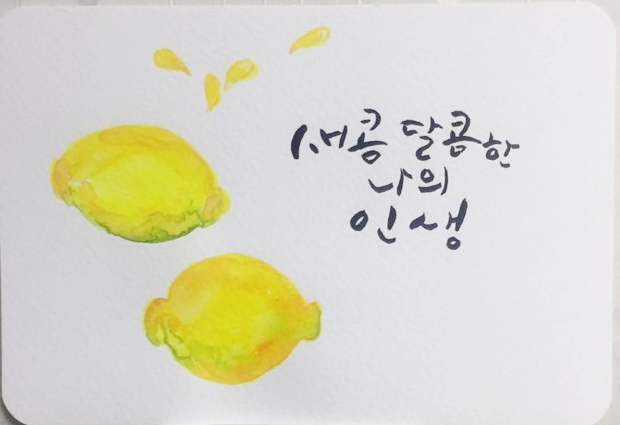 새콤 달콤한
나의
인생